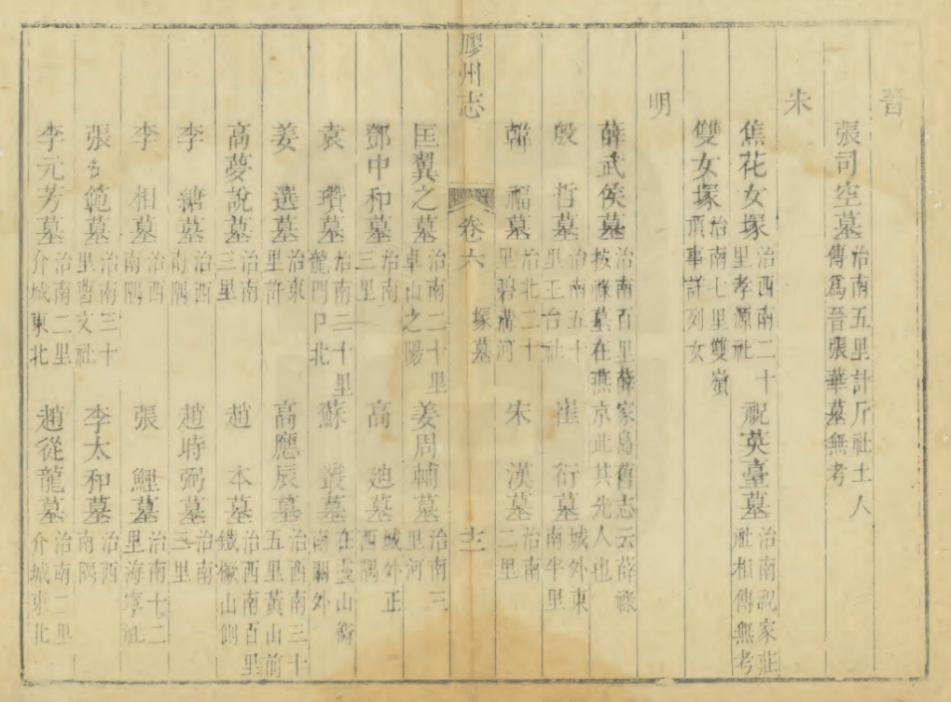 晉
張司空墓 治南五里計斤社土人傳爲晉張華墓無考
宋
焦花女塚 治西南二十里孝源社 祝英臺墓 治南祝家莊社相傳無考
雙女塚 治南七里雙嶺頂事詳列女
明
薛武侯墓 治南百里薛家島舊志云薛祿按祿墓在燕京此其先人也
殷哲墓 治南五十里王台社 崔衍墓 城外東南半里
韓福墓 治北二十里碧溝河 宋漢墓 治南二里
膠州志 卷六 塚墓 十二
匡翼之墓 治南二十里卓山之陽 姜周輔墓 治南三里河
鄧中和墓 治南三里 高廸墓 城外正西隅
袁瓚墓 治南二十里龍門口北 蘇叢墓 在靈山衛南關外
姜選墓 治東里許 高應辰墓 治西南三十五里黃山前
高夢說墓 治南三里 趙本墓 治西南百里鐵橛山側
李 墓 治西南隅 趙時弼墓 治南三里
李相墓 治西南隅 張鯉墓 治南七十二里海寧社
張 範墓 治南三十里曹文社 李太和墓 治西南隅
李元芳墓 治南二里介城東北 趙從龍墓 治南二里介城東北